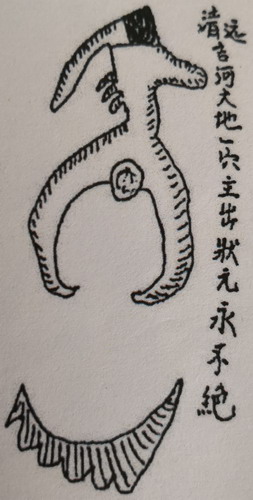 清远吉河大地一穴主出狀元永不絕